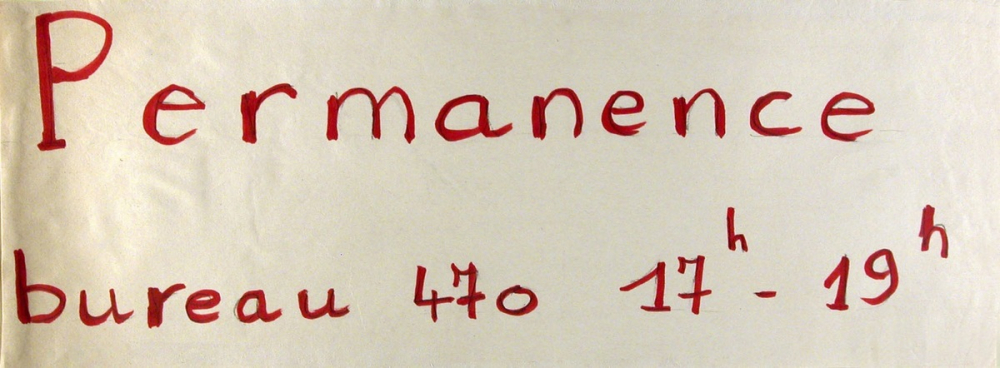 Permanence
bureau 470 17h - 19h